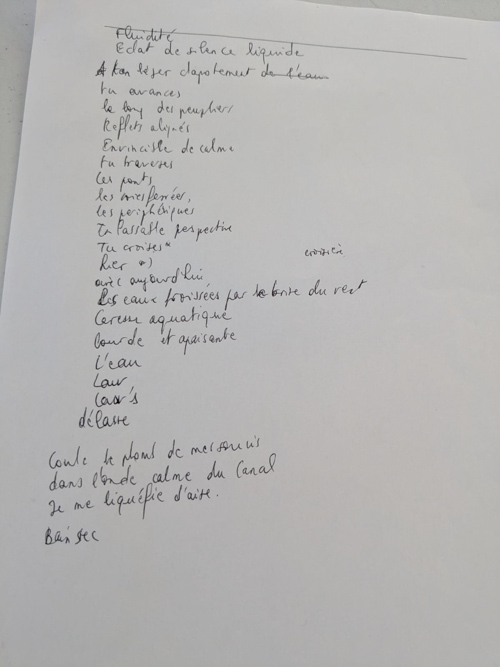 Fluidité
Eclat de silence liquide
A ton léger clapotement de l'eau
tu avances
le long des peupliers
Reflets alignés
Envincible de calme
tu traverses
les ponts,
les voies ferrées,
les périphériques
Inlassable perspective
Tu croises*
croisière
hier *)
avec aujourd'hui
Les eaux froissées par la brise du vent
Caresse aquatique
Lourde et apaisante
L'eau
Lave
délasse
Coule le plomb de mes soucis
dans l'onde calme du Canal
Je me liquéfie d'aise.
Bain sec